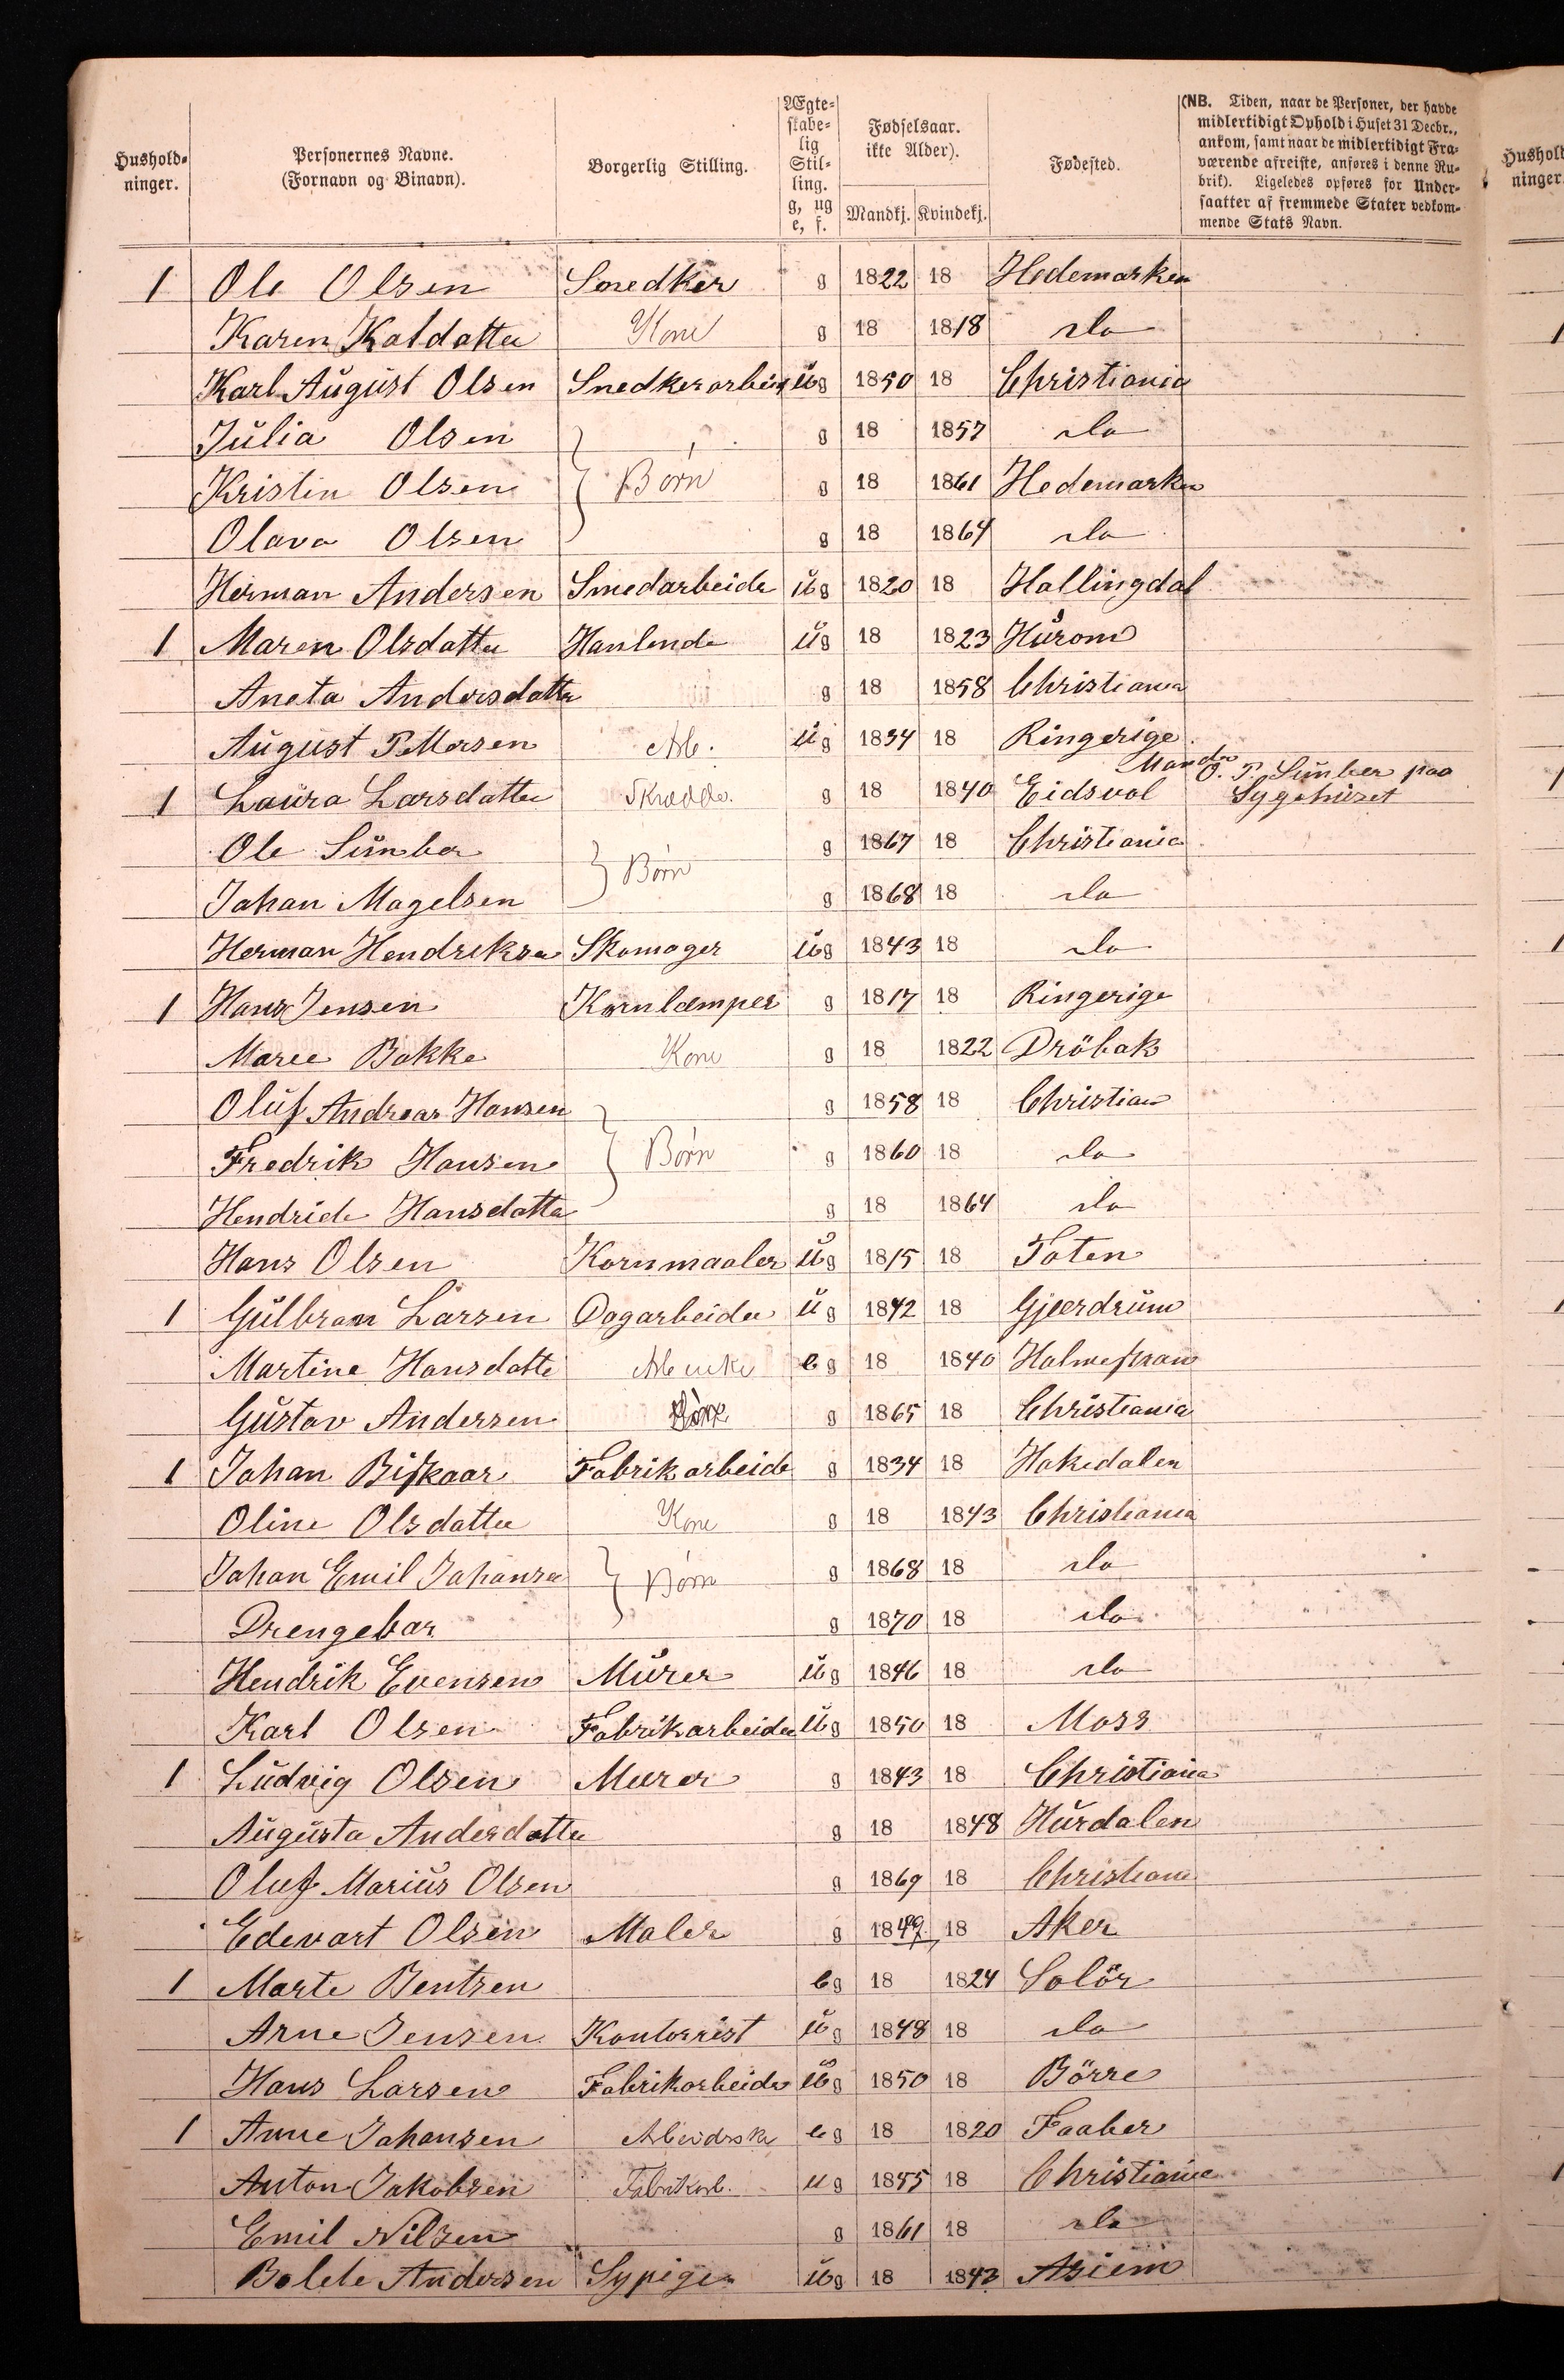 Hushold-
ninger.
Personernes Navne.
(Fornavn og Binavn).
Borgerlig Stilling.
Ægte-
skabe-
lig
Stil-
ling.
g, ug
e, f.
Fødselsaar.
ikke Alder).
Mandkj. Kvindekj.
Fødested.
(NB. Tiden, naar de Personer, der havde
midlertidigt Ophold i Huset 31 Decbr.,
ankom, samt naar de midlertidigt Fra-
værende afreiste, anføres i denne Ru-
brik). Ligeledes opføres for Under-
saatter af fremmede Stater vedkom-
mende Stats Navn.
Hushold
ninger
1 Ole Olsen Snedker g 1822 18 Hedemarken
Karen Kaldatter Kone g 18 1818 do
Karl August Olsen Snedkerarbeid ug 1850 18 Christiania
Julia Olsen g 18 1857 do
Kristin Olsen Børn g 18 1861 Hedemarken
Olava Olsen g 18 1864 do
Herman Andersen Smedarbeider ug 1820 18 Hallingdal
1 Maren Olsdatter Hanlende ug 18 1823 Hurom
Aneta Andersdatter g 18 1858 Christiania
August Pettersen Arb. ug 1834 18 Ringerige
1 Laura Larsdatter Skrædde. g 18 1840 Eidsvol Manden O. P. Simber paa
Sygehuset
Ole Simber g 1867 18 Christiania
Johan Magelsen Børn g 1868 18 do
Herman Hendriksen Skomager ug 1843 18 do
1 Hans Jensen Kornlemper g 1817 18 Ringerige
Maree Bakke Kone g 18 1822 Dröbak
Oluf Andreas Hansen g 1858 18 Christian
Fredrik Hansen Børn g 1860 18 do
Hendride Hansdatter g 18 1864 do
Hans Olsen Kornmaaler ug 1815 18 Toten
1 Gulbran Larsen Dagarbeider ug 1842 18 Gjerdrum
Martine Hansdatte eg 18 1840 Holmestran
Gustav Andersen g 1865 18 Christiania
1 Johan Biskaar Fabrikarbeide g 1834 18 Hakedalen
Oline Olsdatter Kone g 18 1843 Christiania
Johan Emil Johansen Børn g 1868 18 do
Drengebar g 1870 18 do
Hendrik Evensen Murer ug 1846 18 do
Karl Olsen Fabrikarbeider ug 1850 18 Moss
1 Ludvig Olsen Murer g 1843 18 Christiania
Augusta Anderdatter g 18 1848 Hurdalen
Oluf Marius Olsen g 1869 18 Christiania
Edevart Olsen Maler g 1849 18 Aker
1 Marte Bentsen eg 18 1824 Solör
Arne Jensen Kontorrist ug 1848 18 do
Hans Larsen Fabrikarbeider ug 1850 18 Börre
1 Anne Johansen Arbeidsk eg 18 1820 Faaber
Anton Jakobsen Fabrikarb. ug 1855 18 Christiania
Emil Nilsen g 1861 18 do
Bolete Andersen Sypige ug 18 1843 Asiem